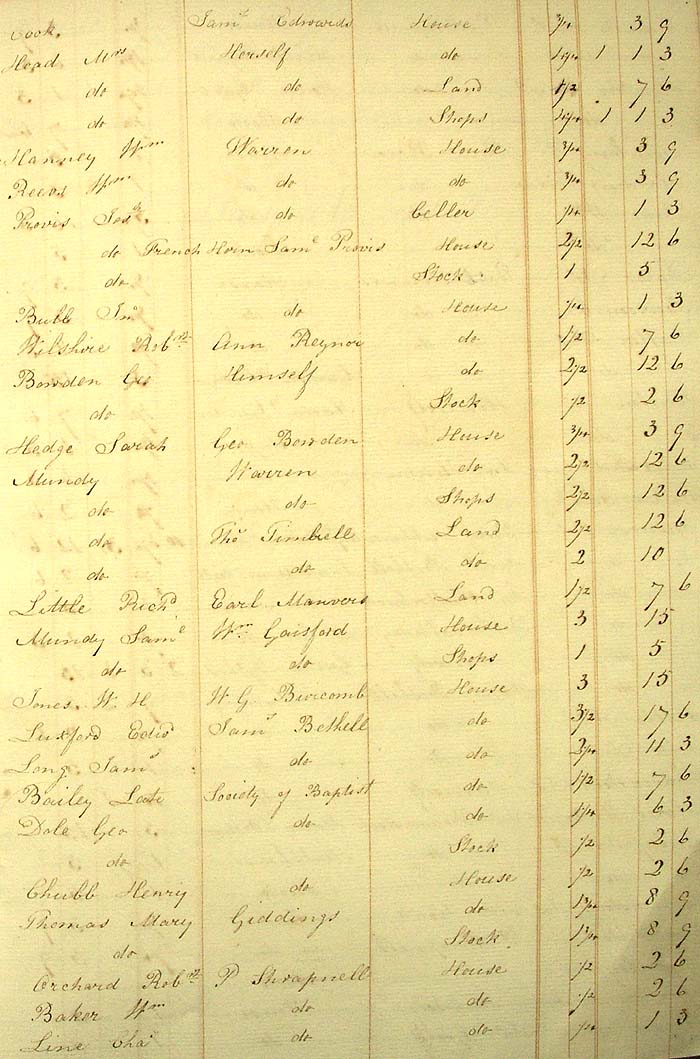 Cook. Sam.l Edwards House 3/4 3 9
Head Mrs Herself do 4 1/4 1 1 3
do do Land 1 1/2 7 6
do do Shops 4 1/4 1 1 3
Hanney Wm Warren House 3/4 3 9
Reeas Wm do do 3/4 3 9
Provis Jos.h do Celler 1/4 1 3
do French Horn Sam.l Provis House 2 1/2 12 6
do Stock 1 5
Bubb Jno do House 1/4 1 3
Wilshire Robrt Ann Reynor do 1 1/2 7 6
Bowden Geo Himself do 2 1/2 12 6
do Stock 1/2 2 6
Hedge Sarah Geo Bowden House 3/4 3 9
Mundy Warren do 2 1/2 12 6
do do Shops 2 1/2 12 6
do Tho.s Timbrell Land 2 1/2 12 6
do do do 2 10
Little Richd Earl Manvers Land 1 1/2 7 6
Mundy Sam.l Wm Gaisford House 3 15
do do Shops 1 5
Jones. W. H W. G Burcomb House 3 15
Luxford Edwd Sam.l Bethell do 3 1/2 17 6
Long Sam.l do do 2 1/4 11 3
Bailey Late Society of Baptist do 1 1/2 7 6
Dole Geo do do 1 1/4 6 3
do Stock 1/2 2 6
Chubb Henry do House 1/2 2 6
Thomas Mary Giddings do 1 3/4 8 9
do Stock 1 3/4 8 9
Orchard Robrt P Shrapnell House 1/2 2 6
Baker Wm do do 1/2 2 6
Line Cha.s do do 1/4 1 3